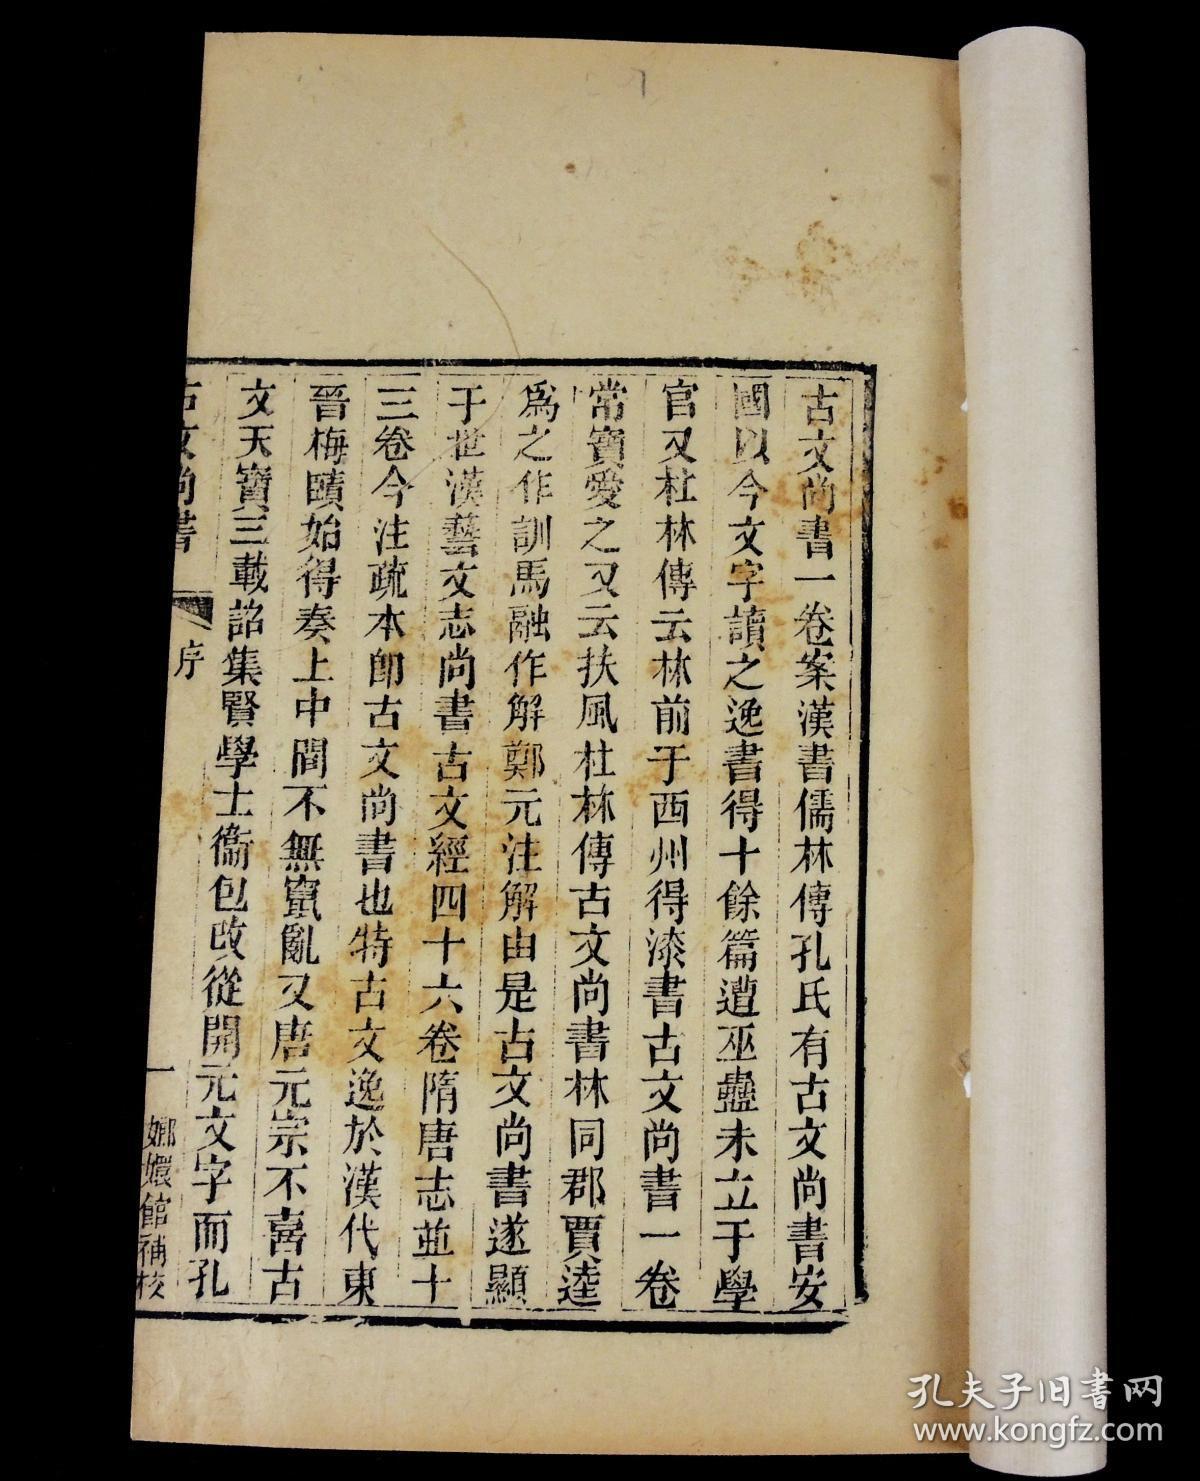 古文尚書一卷案漢書儒林傳孔氏有古文尚書安
國以今文字讀之逸書得十餘篇遭巫蠱未立于學
官又杜林傳云林前于西州得漆書古文尚書一卷
常寶愛之又云扶風杜林傳古文尚書林同郡賈逵
爲之作訓馬融作解鄭元注解由是古文尚書遂顯
于世漢藝文志尚書古文經四十六卷隋唐志並十
三卷今注疏本卽古文尚書也特古文逸於漢代東
晉梅賾始得奏上中間不無竄亂又唐元宗不喜古
文天寶三載詔集賢學士衞包改從開元文字而孔
古文尚書 序 一 嫏嬛館補校
孔夫子旧書网
www.kongfz.com